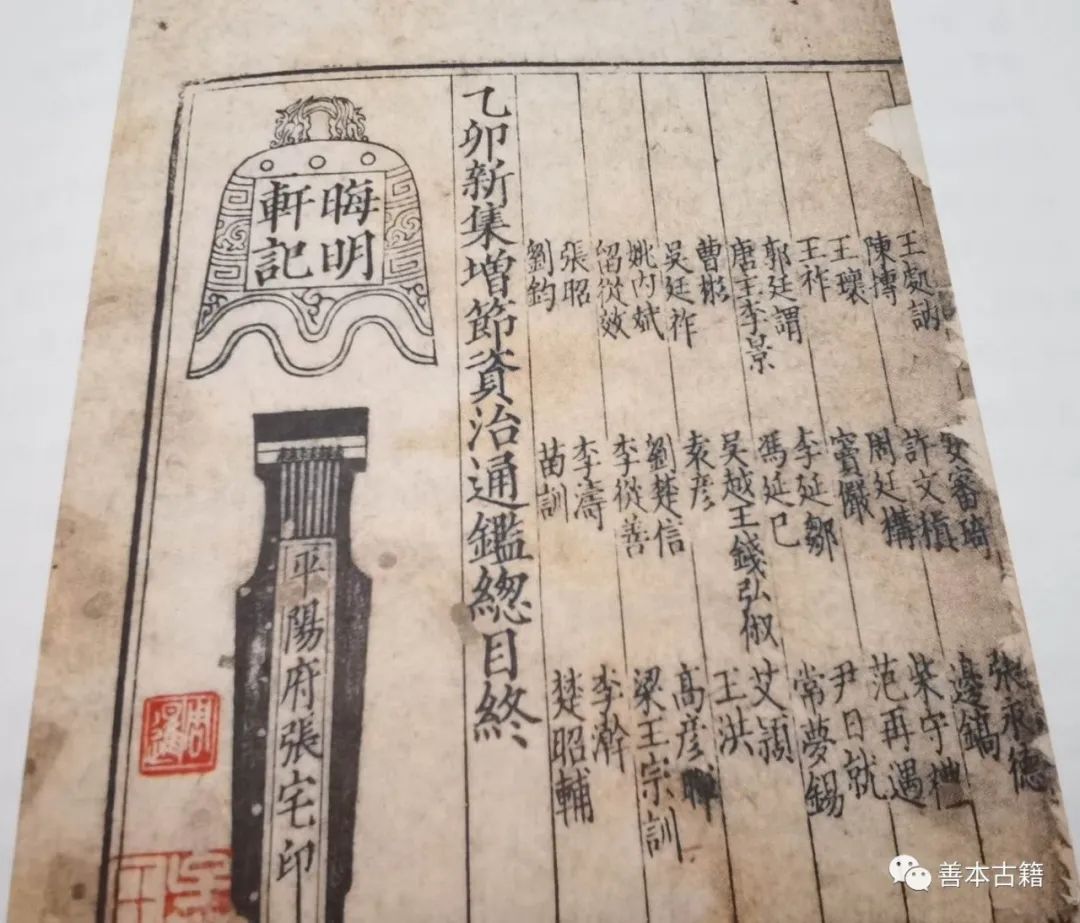 王處訥 安審琦 張永德
陳摶 許文稹 邊鎬
王環 周廷構 柴守禮
王祚 竇儼 范再遇
郭廷謂 李延鄒 尹日就
唐主李景 馮延巳 常夢錫
曹彬 吳越王錢弘俶 艾穎
吳廷祚 袁彥 王洪
姚內斌 劉楚信 高彥暉
留從效 李從善 梁王宗訓
張昭 李濤 李澣
劉鈞 苗訓 楚昭輔
乙卯新集增節資治通鑑總目終
晦明
軒記
平陽府張宅印
善本古籍